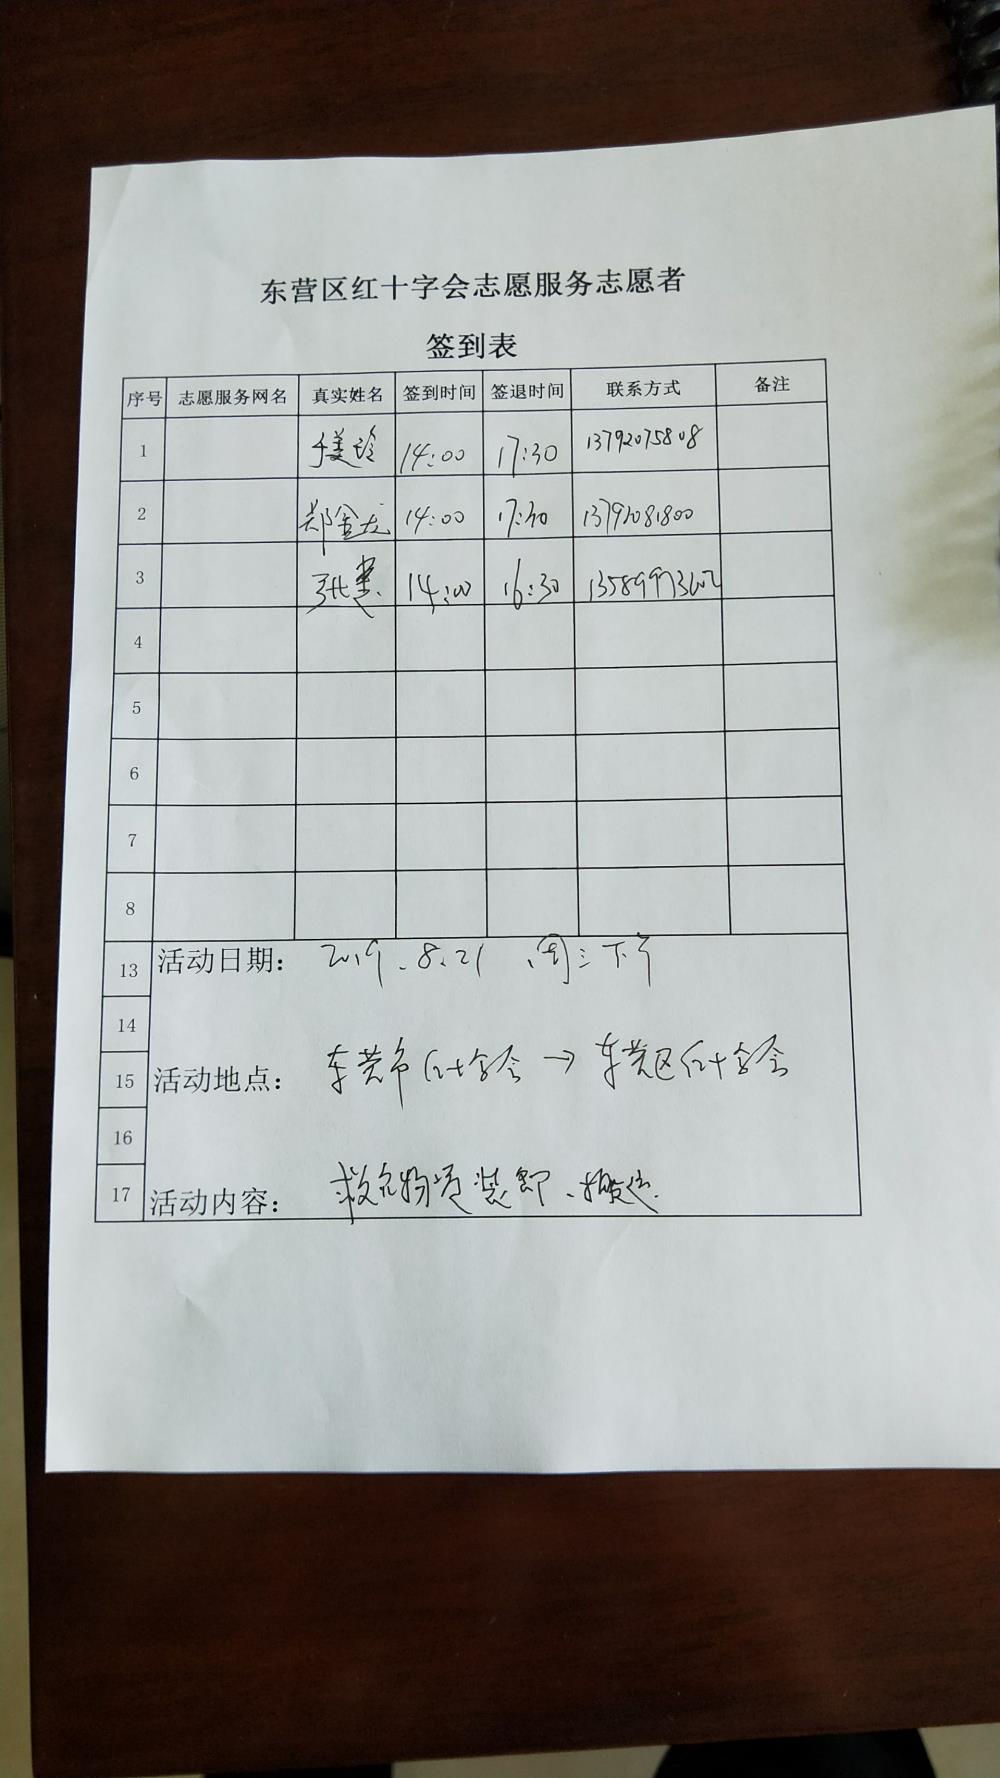 东营区红十字会志愿服务志愿者
签到表
序号 志愿服务网名 真实姓名 签到时间 签退时间 联系方式 备注
1 于美玲 14:00 17:30 13792075808
2 郑金龙 14:00 17:30 13792081800
3 14:00 16:30
4
5
6
7
8
13 活动日期： 2019.8.21 周三下午
14
15 活动地点： 东营市红十字会→东营区红十字会
16
17 活动内容： 救灾物资装卸、搬运